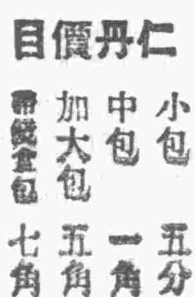 仁丹價目
小包 五分
中包 一角
加大包 五角
帶鏡盒包 七角